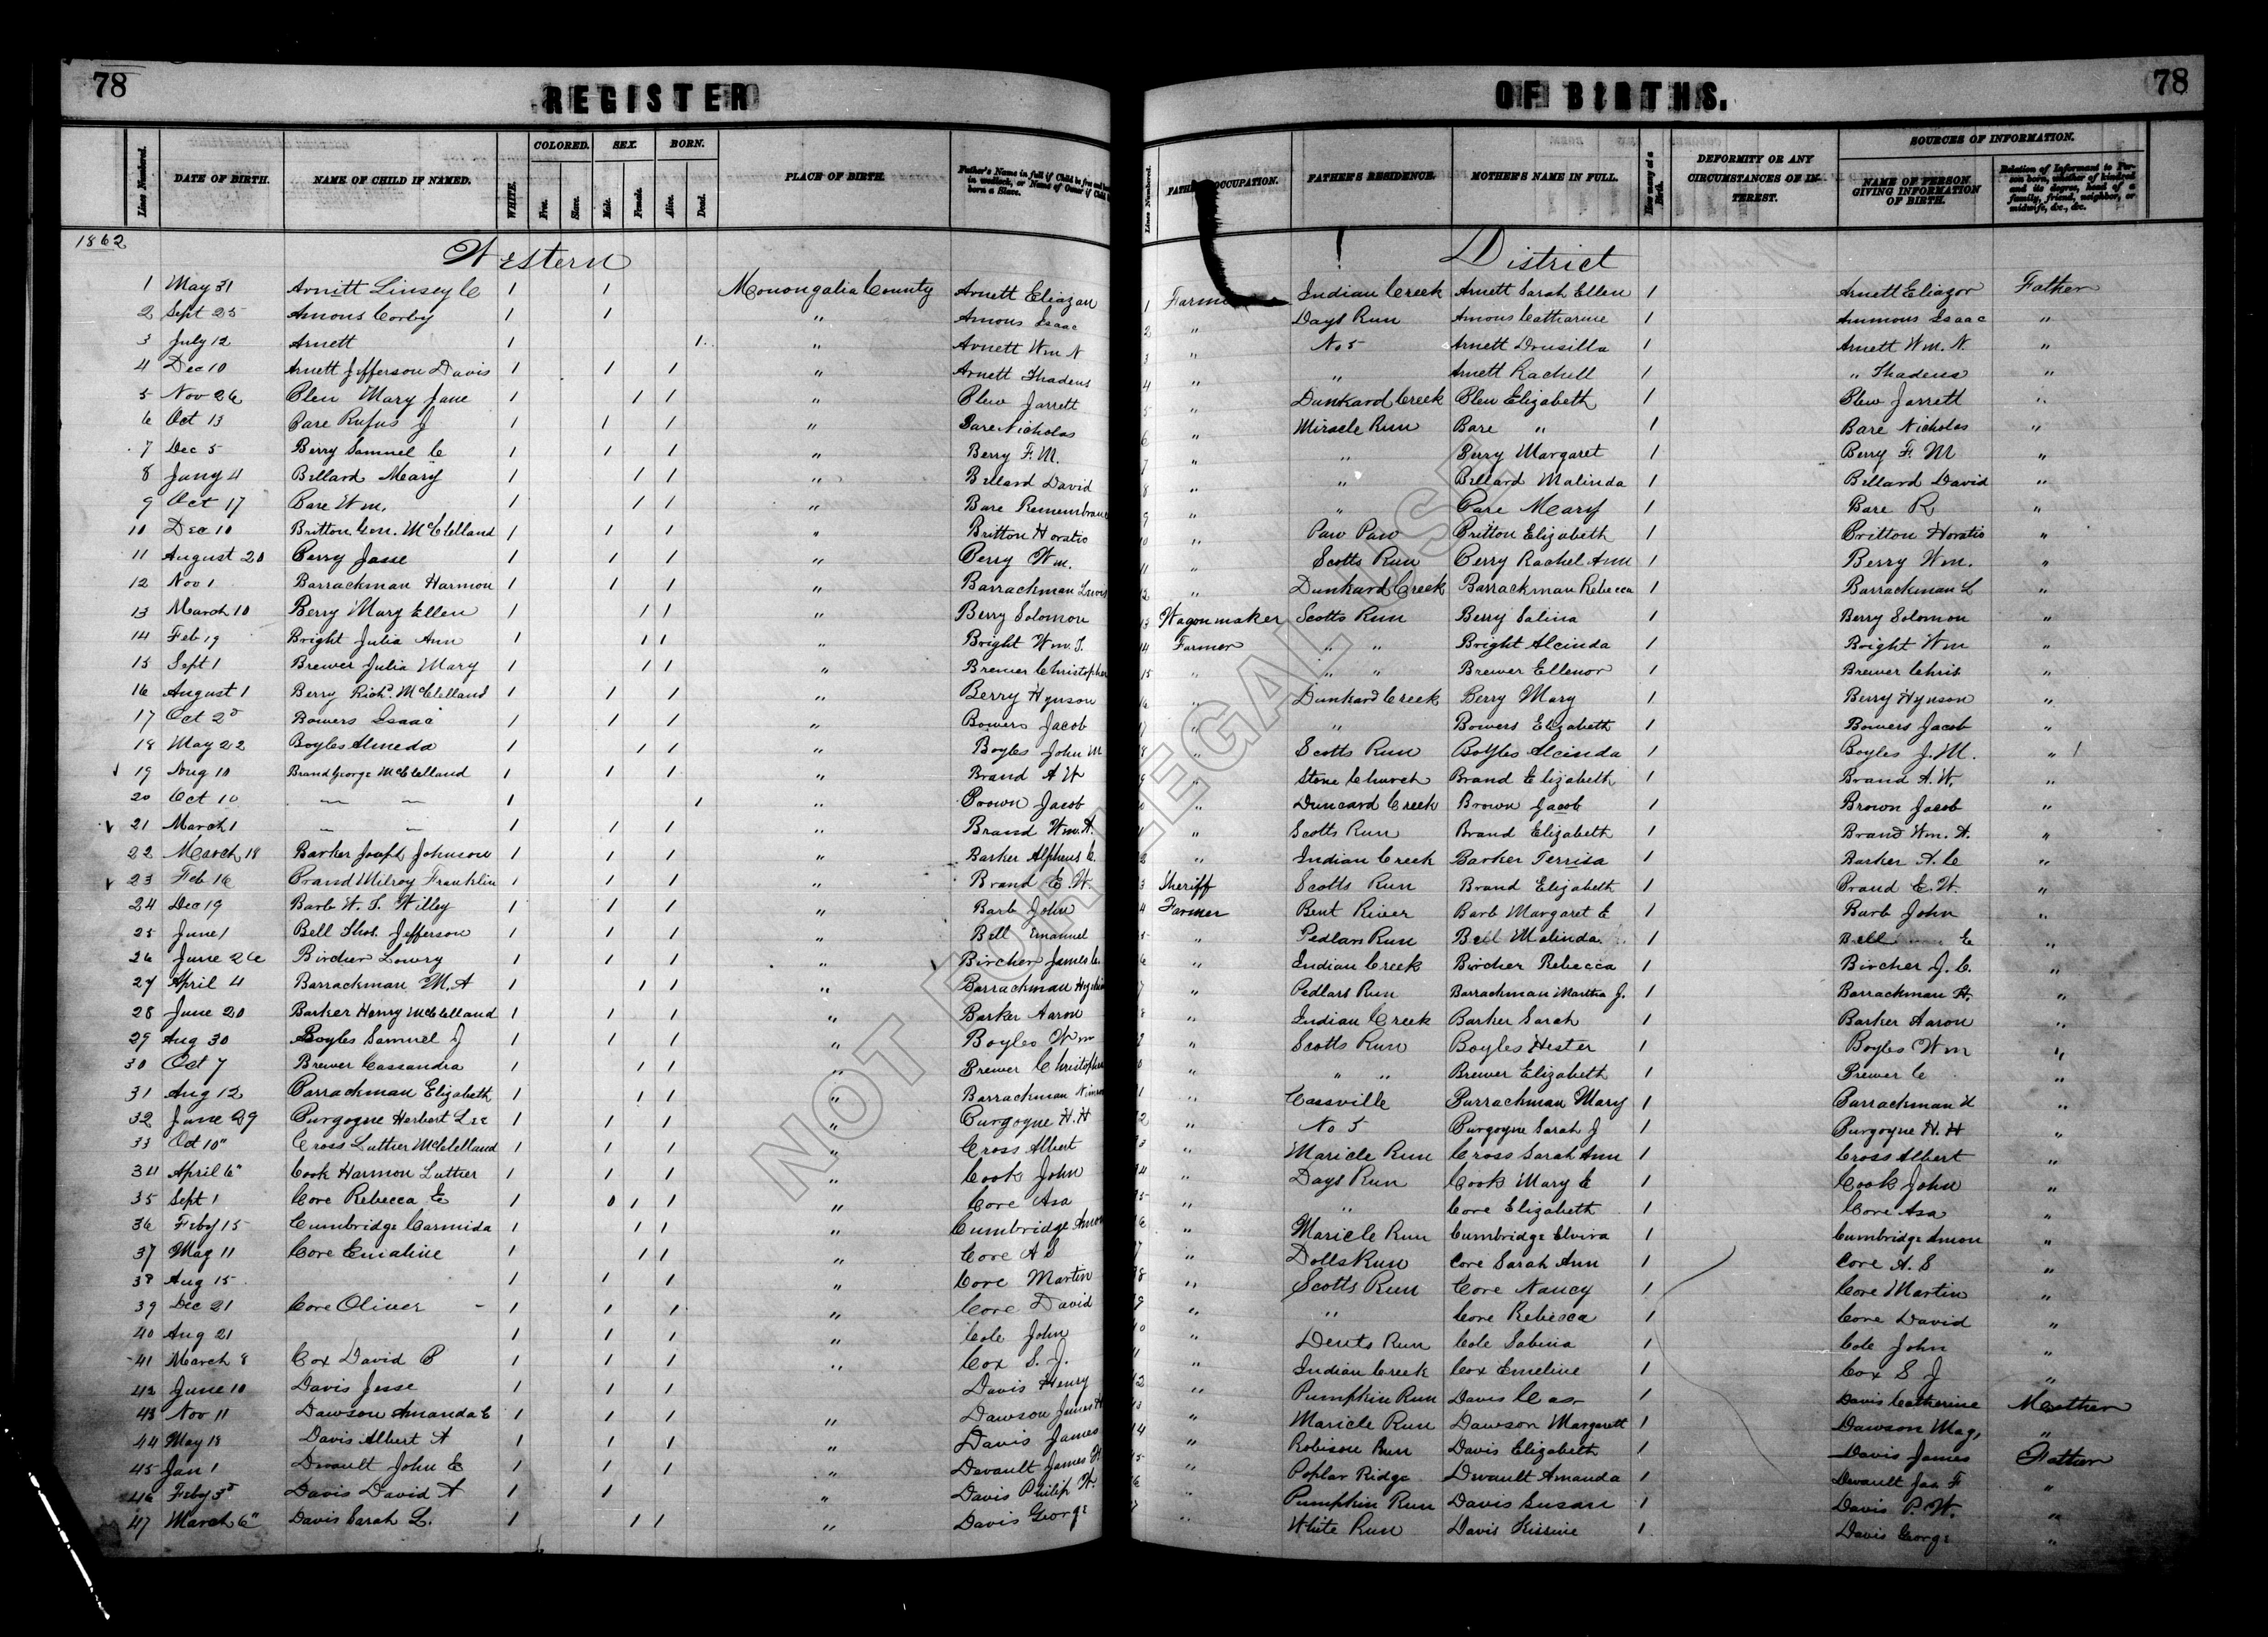 78 REGISTER OF BIRTHS. 78
Lines Numbered. DATE OF BIRTH. NAME OF CHILD IF NAMED. WHITE. COLORED. Free. Slave. SEX. Male. Female. BORN. Alive. Dead. PLACE OF BIRTH. Father's Name in full if Child is free and born in wedlock, or Name of Owner if Child born a Slave. Lines Numbered. FATHER'S OCCUPATION. FATHER'S RESIDENCE. MOTHER'S NAME IN FULL. How many at a Birth. DEFORMITY OR ANY CIRCUMSTANCES OF INTEREST. SOURCES OF INFORMATION. NAME OF PERSON GIVING INFORMATION OF BIRTH. Relation of Informant to Person born, whether of kindred and its degree, head of a family, friend, neighbor, or midwife, &c., &c.
1862 Western District
1 May 31 Arnett Linsey C 1 1 Monongalia County Arnett Eliazan 1 Farmer Indian Creek Arnett Sarah Ellen 1 Arnett Eliazor Father
2 Sept 25 Amons Corby 1 1 " Amons Isaac 2 " Days Run Amous Catharine 1 Ammous Isaac "
3 July 12 Arnett 1 1 " Arnett Wm N 3 " No 5 Arnett Drusilla 1 Arnett Wm. N. "
4 Dec 10 Arnett Jefferson Davis 1 1 1 " Arnett Thadeus 4 " " Arnett Rachell 1 " Thadeus "
5 Nov 26 Blew Mary Jane 1 1 1 " Blew Jarrett 5 " Dunkard Creek Blew Elizabeth 1 Blew Jarrett "
6 Oct 13 Bare Rufus J 1 1 1 " Bare Nicholas 6 " Miracle Run Bare " 1 Bare Nicholas "
7 Dec 5 Berry Samuel C 1 1 1 " Berry F. M. 7 " " Berry Margaret 1 Berry F. M "
8 Jany 4 Billard Mary 1 1 1 " Billard David 8 " " Billard Malinda 1 Billard David "
9 Oct 17 Bare Wm. 1 1 1 " Bare Remembrance 9 " " Bare Mary 1 Bare R "
10 Dec 10 Britton Gen. McClelland 1 1 1 " Britton Horatio 10 " Paw Paw Britton Elizabeth 1 Britton Horatio "
11 August 20 Berry Jasse 1 1 1 " Berry Wm. 11 " Scotts Run Berry Rachel Ann 1 Berry Wm. "
12 Nov 1 Barrackman Harmon 1 1 1 " Barrackman Lewis 12 " Dunkard Creek Barrackman Rebecca 1 Barrackman L "
13 March 10 Berry Mary Ellen 1 1 1 " Berry Solomon 13 Wagonmaker Scotts Run Berry Salina 1 Berry Solomon "
14 Feb 19 Bright Julia Ann 1 1 1 " Bright Wm. T. 14 Farmer " " Bright Alcinda 1 Bright Wm "
15 Sept 1 Brewer Julia Mary 1 1 1 " Brewer Christopher 15 " " " Brewer Ellenor 1 Brewer Chris "
16 August 1 Berry Richd. McClelland 1 1 1 " Berry Hynson " Dunkard Creek Berry Mary 1 Berry Hynson "
17 Oct 20 Bowers Isaac 1 1 1 " Bowers Jacob " " Bowers Elizabeth 1 Bowers Jacob "
18 May 22 Boyles Almeda 1 1 1 " Boyles John M 8 " Scotts Run Boyles Alcinda 1 Boyles J. M. "
19 Aug 10 Brand George McClelland 1 1 1 " Brand A W 9 " Stone Church Brand Elizabeth 1 Brand A. W. "
20 Oct 10 — — 1 1 " Brown Jacob 0 " Duncard Creek Brown Jacob 1 Brown Jacob "
21 March 1 — — 1 1 1 " Brand Wm. A. " Scotts Run Brand Elizabeth 1 Brand Wm. A. "
22 March 18 Barker Joseph Johnson 1 1 1 " Barker Alpheus C. " Indian Creek Barker Terrisa 1 Barker A. C "
23 Feb 16 Brand Milroy Franklin 1 1 1 " Brand E. W. 3 Sheriff Scotts Run Brand Elizabeth 1 Brand E. W. "
24 Dec 19 Barb W. T. Willey 1 1 1 " Barb John 4 Farmer Bent River Barb Margaret E 1 Barb John "
25 June 1 Bell Thos. Jefferson 1 1 1 " Bell Emanuel 5 " Pedlars Run Bell Malinda 1 Bell E "
26 June 26 Bircher Lowry 1 1 1 " Bircher James C. 6 " Indian Creek Bircher Rebecca 1 Bircher J. C. "
27 April 4 Barrackman M. A 1 1 1 " Barrackman 7 " Pedlars Run Barrackman Martha J. 1 Barrackman H. "
28 June 20 Barker Henry McClelland 1 1 1 " Barker Aaron 8 " Indian Creek Barker Sarah 1 Barker Aaron "
29 Aug 30 Boyles Samuel J 1 1 1 " Boyles Wm 9 " Scotts Run Boyles Hester 1 Boyles Wm "
30 Oct 7 Brewer Cassandra 1 1 1 " Brewer Christopher 0 " " " Brewer Elizabeth 1 Brewer C "
31 Aug 12 Barrackman Elizabeth 1 1 1 " Barrackman 1 " Cassville Barrackman Mary 1 Barrackman N "
32 June 29 Burgoyne Herbert Lee 1 1 1 " Burgoyne H. H 2 " No 5 Burgoyne Sarah J 1 Burgoyne H. H "
33 Oct 10" Cross Luther McClelland 1 1 1 " Cross Albert 3 " Maricle Run Cross Sarah Ann 1 Cross Albert "
34 April 6" Cook Harmon Luther 1 1 1 " Cook John 4 " Days Run Cook Mary E 1 Cook John "
35 Sept 1 Core Rebecca E 1 0 1 1 " Core Asa 5 " " Core Elizabeth 1 Core Asa "
36 Feby 15 Cumbridge Carmida 1 1 1 " Cumbridge Amon 6 " Maricle Run Cumbridge Elvira 1 Cumbridge Amon "
37 May 11 Core Emaline 1 1 1 " Core A S 7 " Dolls Run Core Sarah Ann 1 Core A. S "
38 Aug 15 1 1 1 " Core Martin 8 " Scotts Run Core Nancy 1 Core Martin "
39 Dec 21 Core Oliver - 1 1 1 " Core David 9 " " Core Rebecca 1 Core David "
40 Aug 21 1 1 1 " Cole John 10 " Dents Run Cole Sabina 1 Cole John "
41 March 8 Cox David B 1 1 1 " Cox S. J. " Indian Creek Cox Emeline 1 Cox S J "
42 June 10 Davis Jesse 1 1 1 Davis Henry 12 " Pumpkin Run Davis Cas 1 Davis Catherine Mother
43 Nov 11 Dawson Amanda E 1 1 1 " Dawson James H 13 " Maricle Run Dawson Margarett 1 Dawson Mag. "
44 May 18 Davis Albert A 1 1 1 " Davis James 14 " Robison Run Davis Elizabeth 1 Davis James Father
45 Jan 1 Devault John E 1 1 1 " Devault James F 15 " Poplar Ridge Devault Amanda 1 Devault Jas F "
46 Feby 3d Davis David A 1 1 " Davis Philip W. 6 " Pumpkin Run Davis Susan 1 Davis P. W. "
47 March 6" Davis Sarah L. 1 1 1 " Davis George " White Run Davis Kissine 1 Davis George "
NOT FOR LEGAL USE